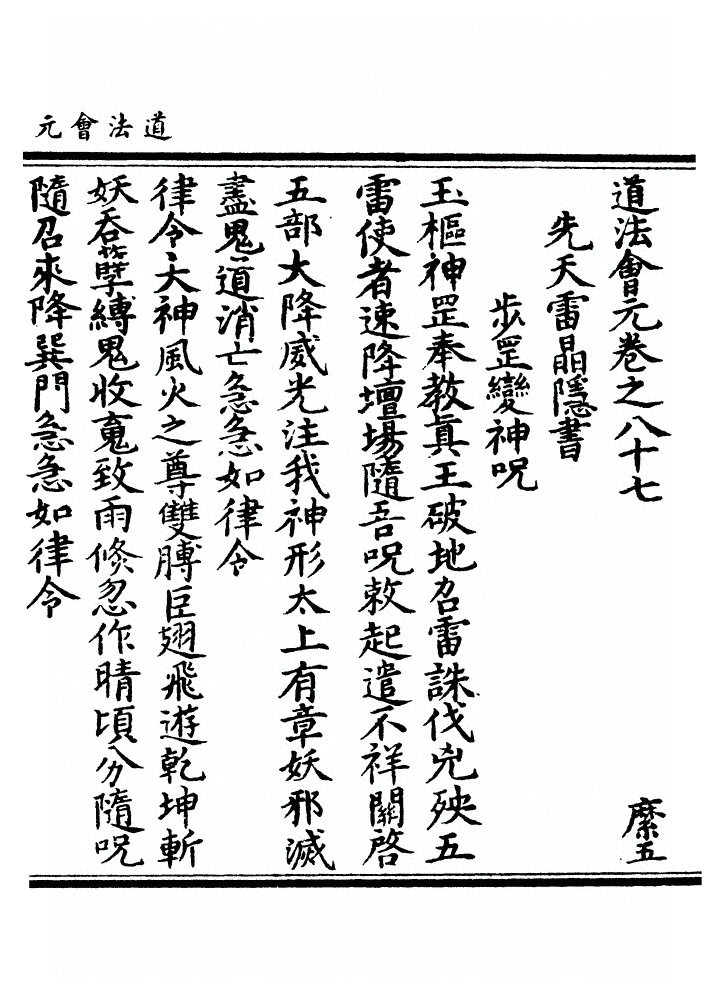 道法會元
道法會元卷之八十七
縻五
先天雷晶隱書
步罡變神呪
玉樞神罡奉教真王破地召雷誅伐兇殃五
雷使者速降壇場隨吾呪敕起遣不祥關啓
五部大降威光注我神形太上有章妖邪滅
盡鬼道消亡急急如律令
律令大神風火之尊雙膊巨翅飛遊乾坤斬
妖吞孽縛鬼收䰟致雨倏忽作晴頃分隨呪
隨召來降巽門急急如律令